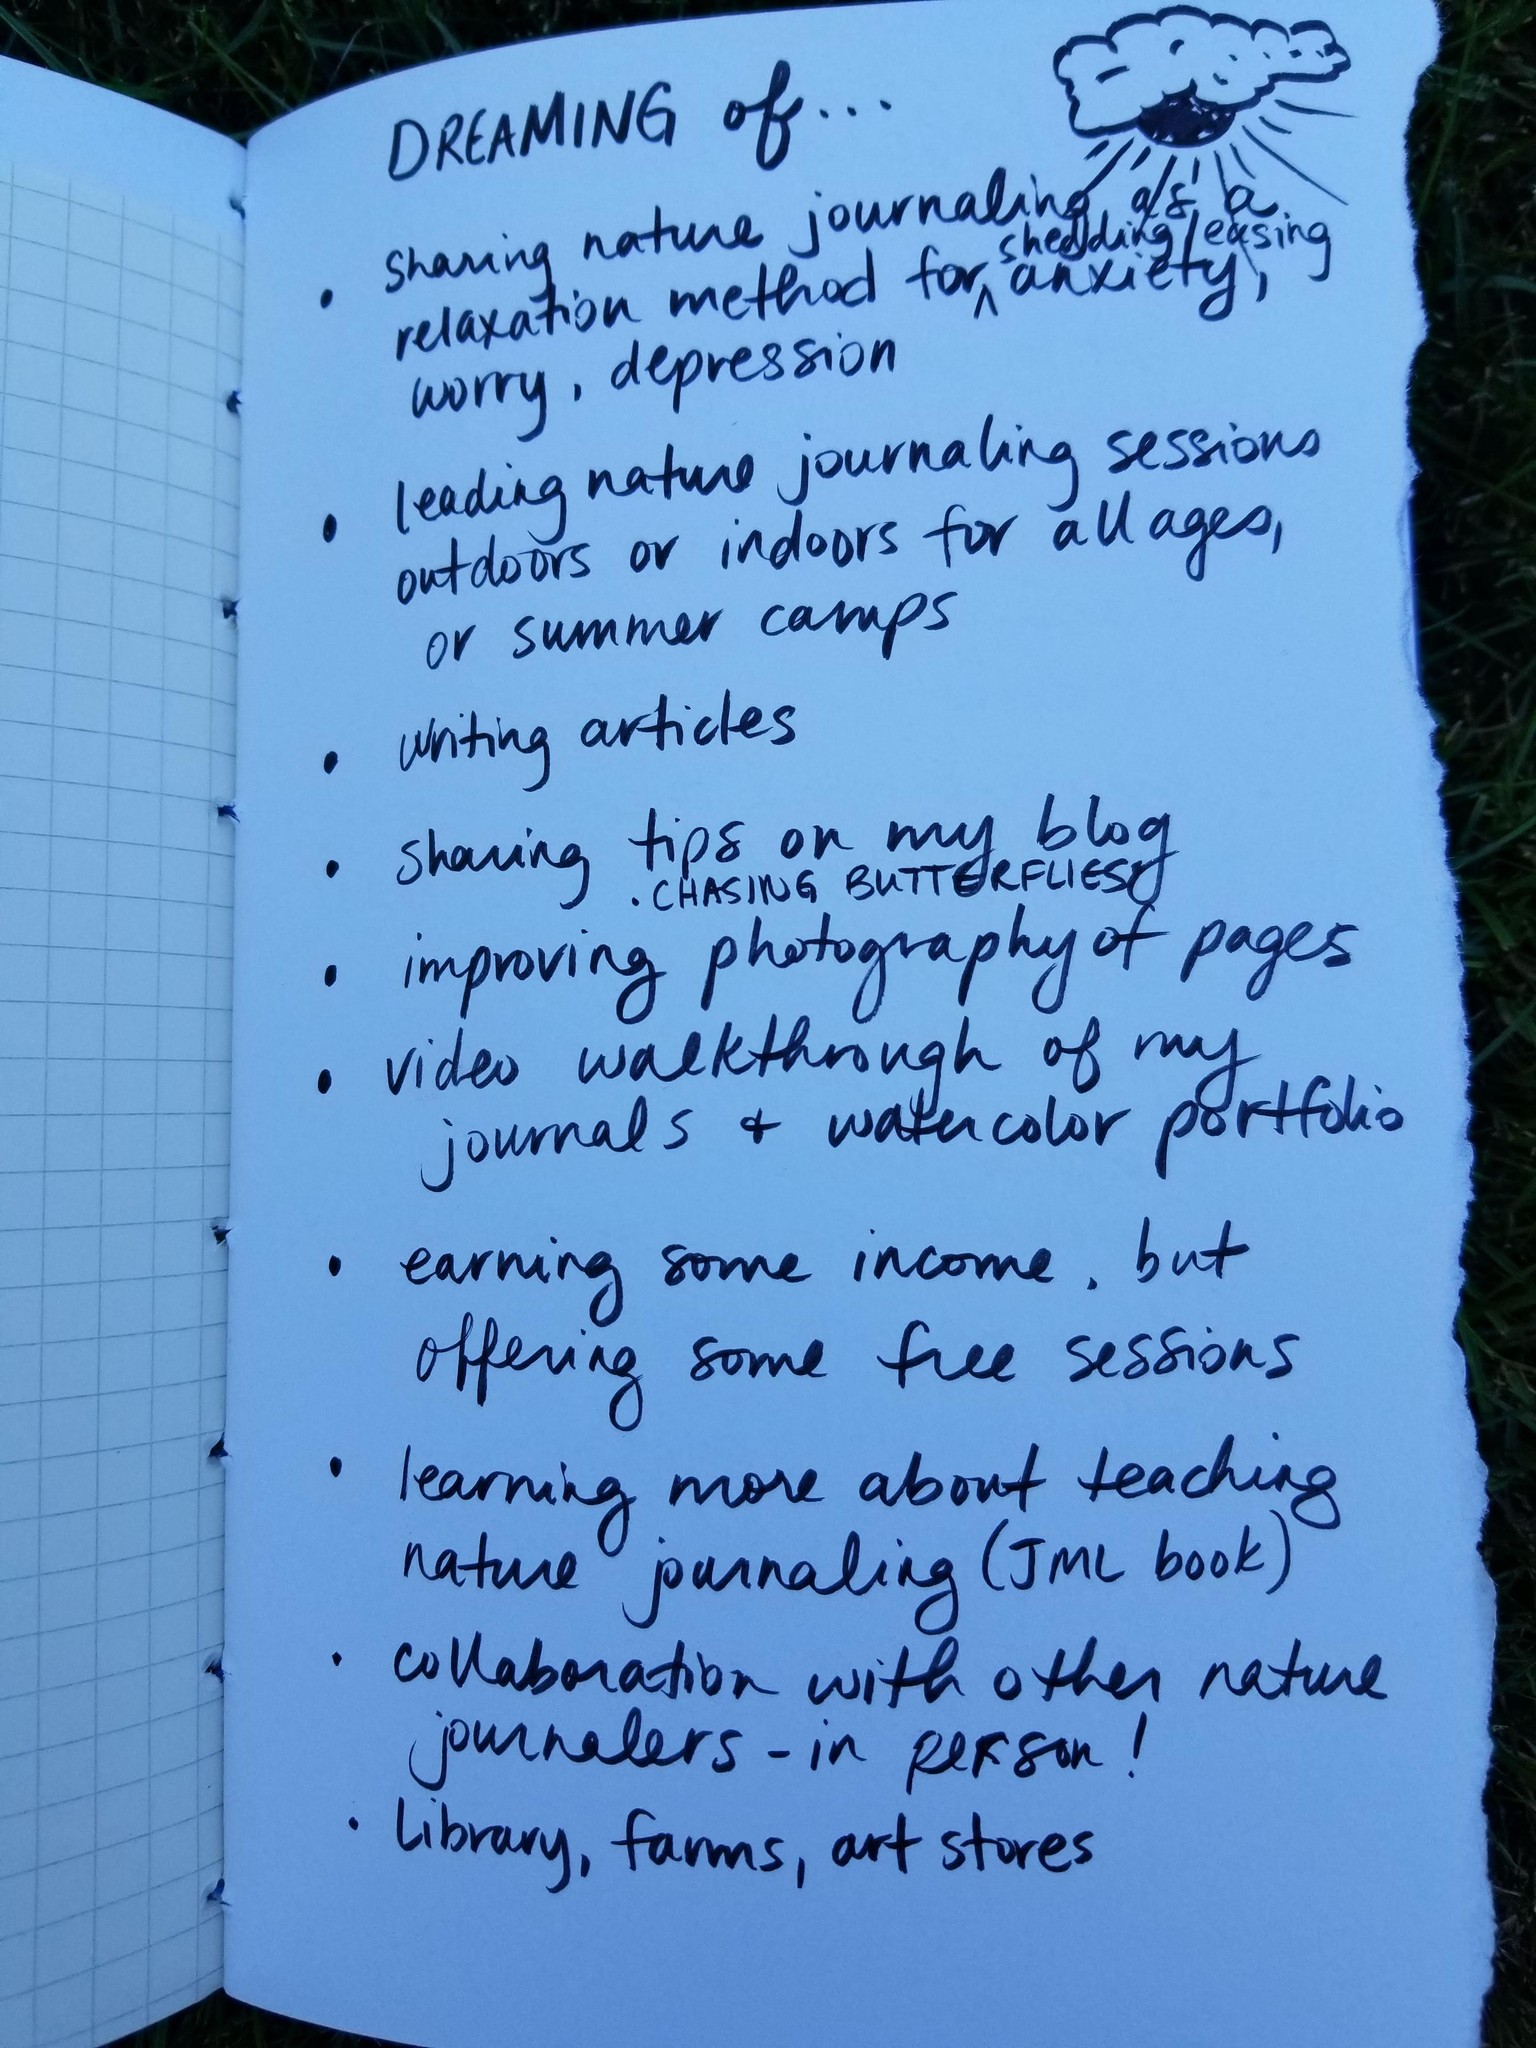 DREAMING of...
• sharing nature journaling as a
relaxation method for ^ shedding/easing anxiety,
worry, depression
• leading nature journaling sessions
outdoors or indoors for all ages,
or summer camps
• writing articles
• sharing tips on my blog
. CHASING BUTTERFLIES
• improving photography of pages
• video walkthrough of my
journals + watercolor portfolio
• earning some income, but
offering some free sessions
• learning more about teaching
nature journaling (JML book)
• collaboration with other nature
journalers - in person!
• library, farms, art stores